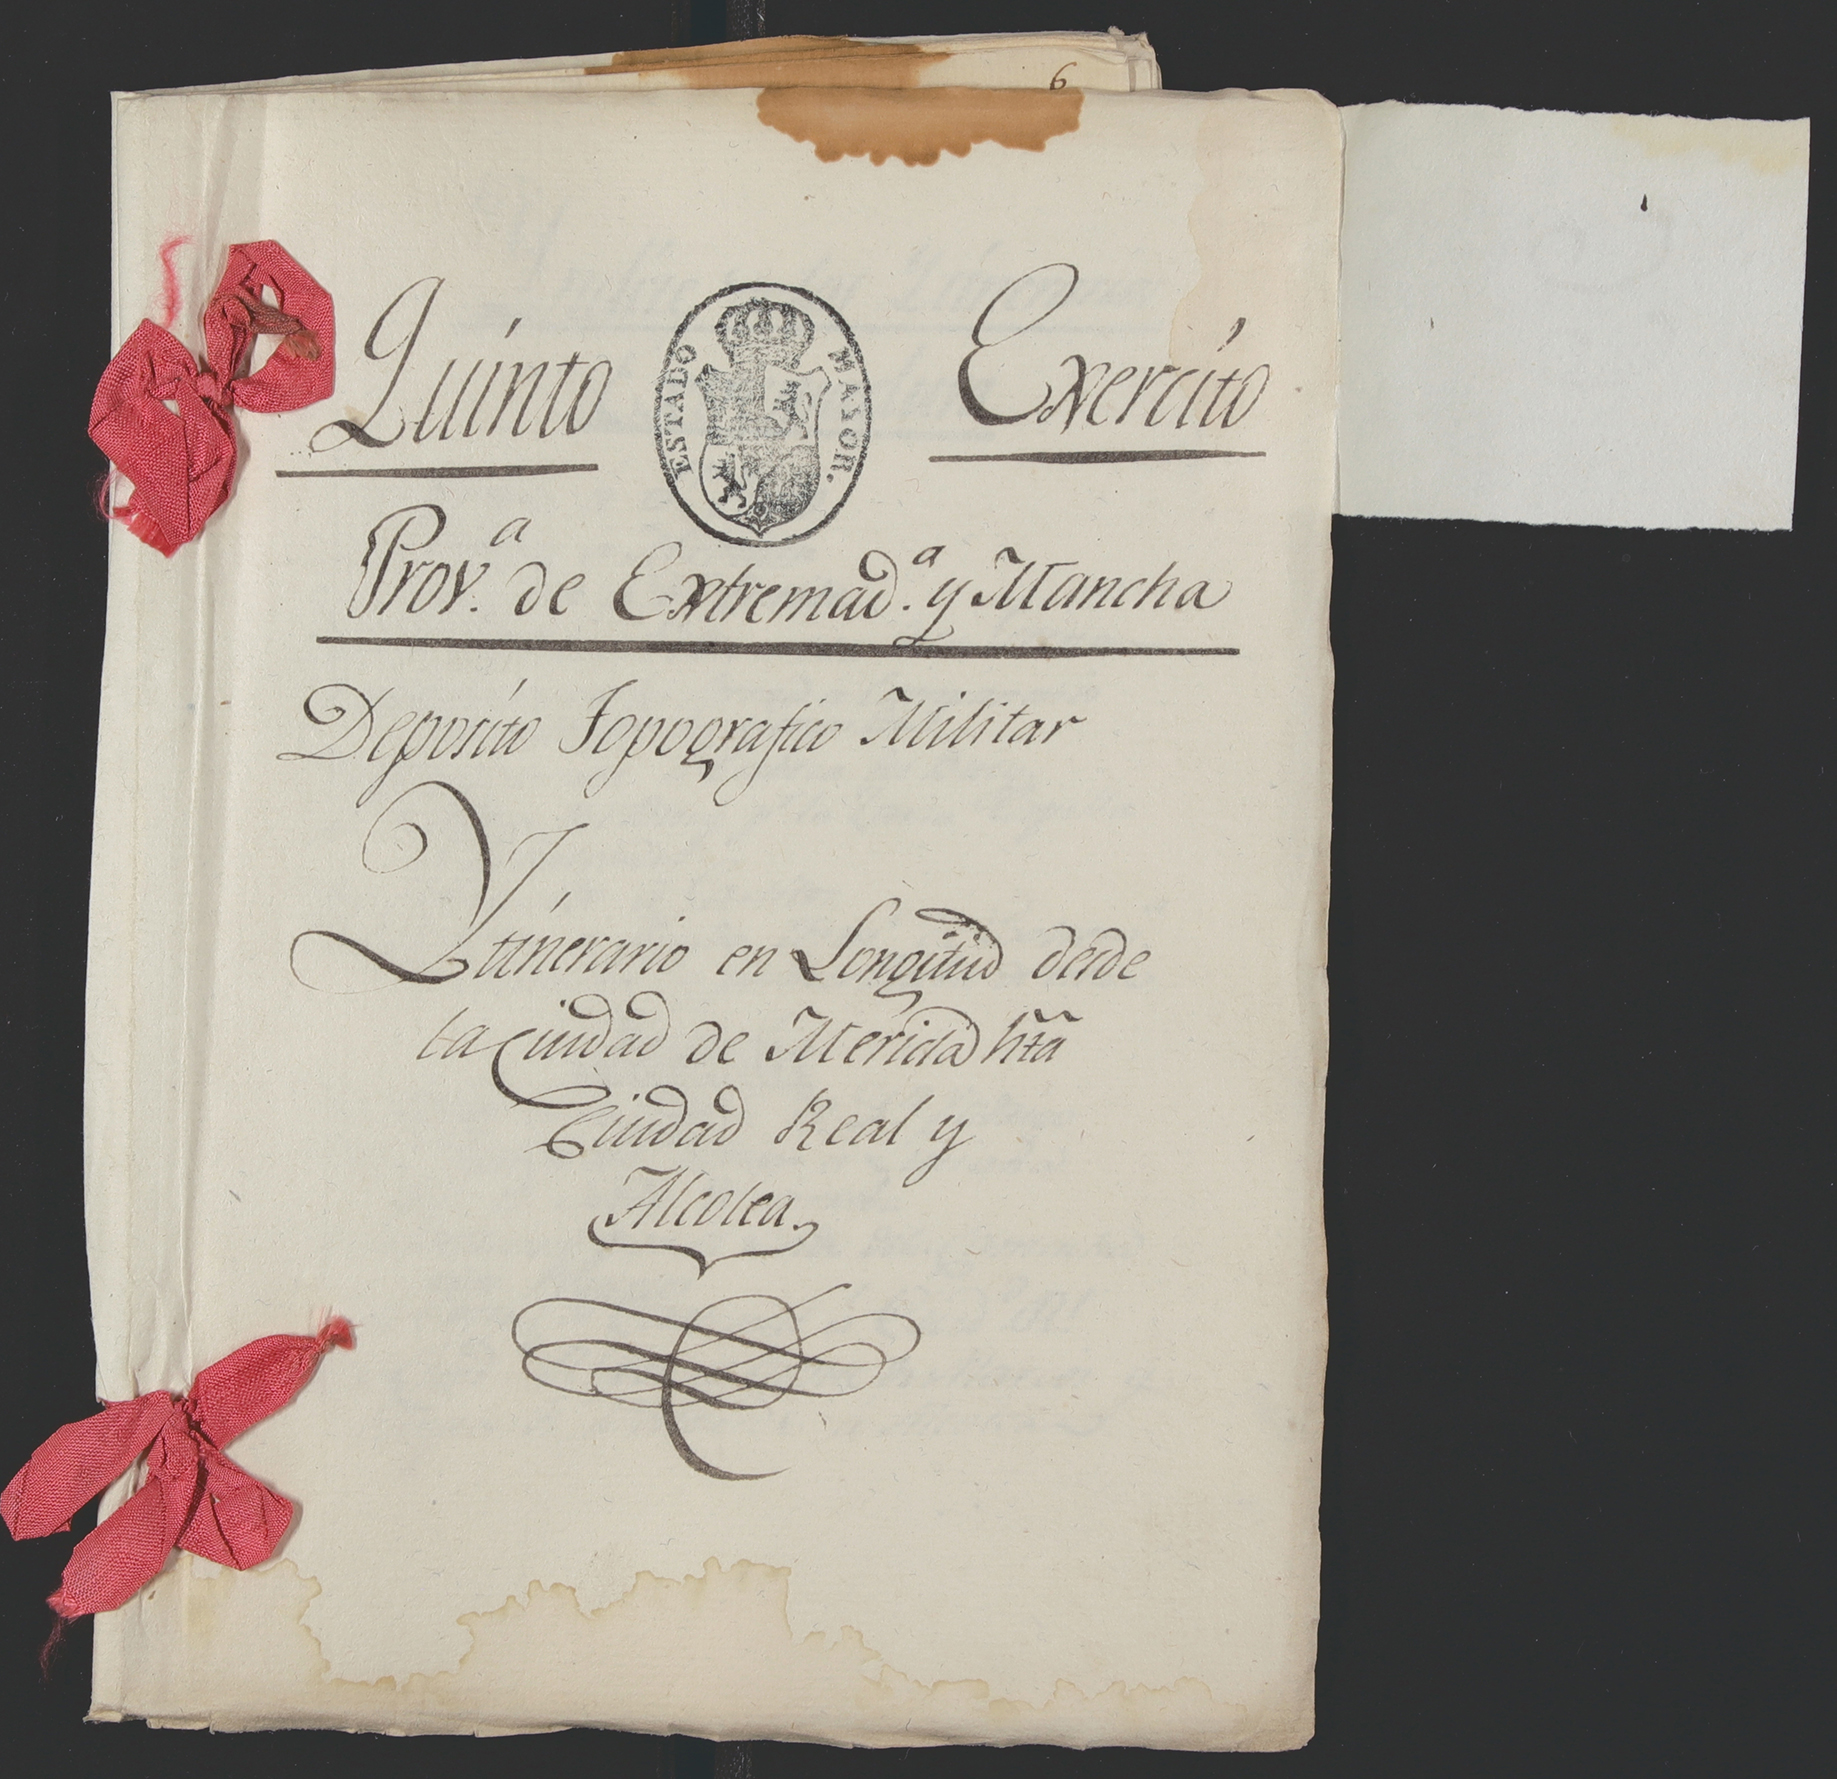 6
Quinto Exercito
ESTADO MAYOR.
Prov.ª de Extremad.ª y Mancha
Deposito Topografico Militar
Ytinerario en Longitud desde
la Ciudad de Merida hta
Ciudad Real y
Alcolea.